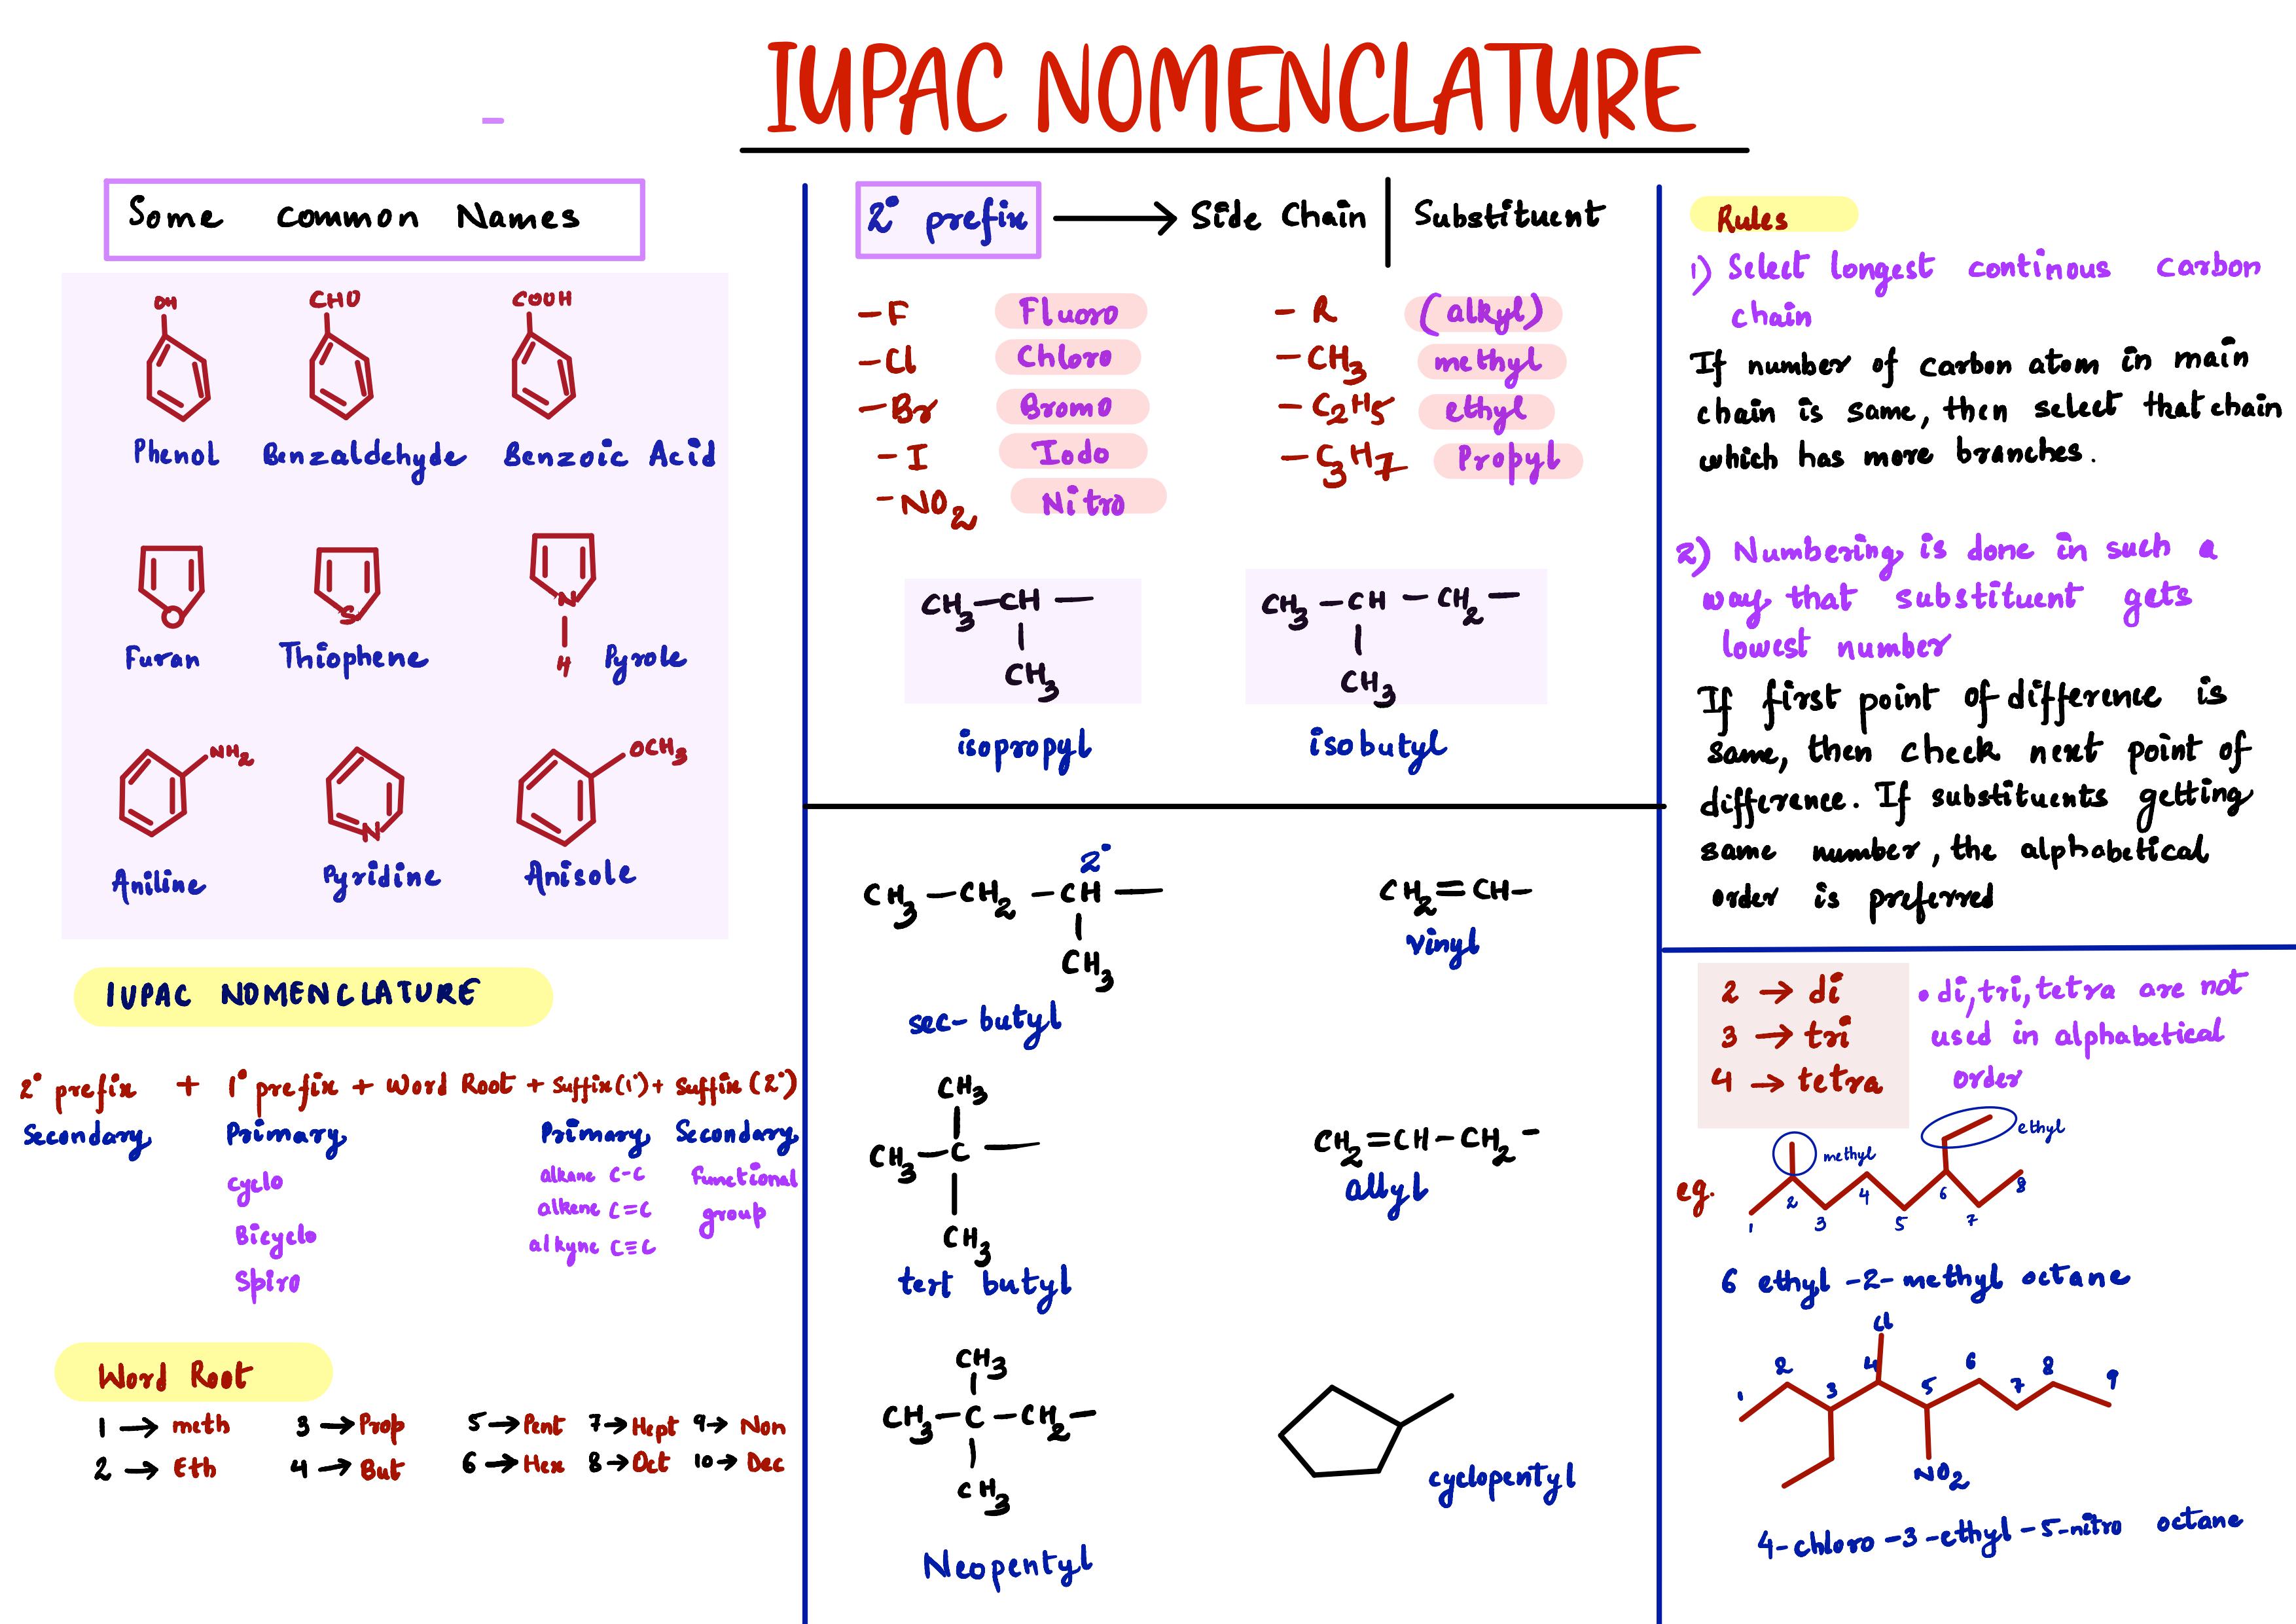 IUPAC NOMENCLATURE
Some common Names
OH
CHO
COOH
Phenol
Benzaldehyde
Benzoic Acid
O
S
N
H
Furan
Thiophene
Pyrole
NH2
N
OCH3
Aniline
Pyridine
Anisole
IUPAC NOMENCLATURE
2° prefix + 1° prefix + Word Root + Suffix (1°) + Suffix (2°)
Secondary
Primary
Primary
Secondary
cyclo
Bicyclo
Spiro
alkane C-C
alkene C=C
alkyne C≡C
functional
group
Word Root
1 → meth
3 → Prop
5 → Pent
7 → Hept
9 → Non
2 → Eth
4 → But
6 → Hex
8 → Oct
10 → Dec
2° prefix → Side Chain | Substituent
-F Fluoro
-R (alkyl)
-Cl Chloro
-CH3 methyl
-Br Bromo
-C2H5 ethyl
-I Iodo
-C3H7 Propyl
-NO2 Nitro
CH3-CH-
CH3
isopropyl
CH3-CH-CH2-
CH3
isobutyl
2°
CH3-CH2-CH-
CH3
sec-butyl
CH2=CH-
vinyl
CH3
CH3-C-
CH3
tert butyl
CH2=CH-CH2-
allyl
CH3
CH3-C-CH2-
CH3
Neopentyl
cyclopentyl
Rules
1) Select longest continous carbon
chain
If number of carbon atom in main
chain is same, then select that chain
which has more branches.
2) Numbering is done in such a
way that substituent gets
lowest number
If first point of difference is
same, then check next point of
difference. If substituents getting
same number, the alphabetical
order is preferred
2 → di
3 → tri
4 → tetra
• di, tri, tetra are not
used in alphabetical
order
eg.
methyl
ethyl
1 2 3 4 5 6 7 8
6 ethyl -2- methyl octane
Cl
1 2 3 4 5 6 7 8 9
NO2
4-chloro-3-ethyl-5-nitro octane